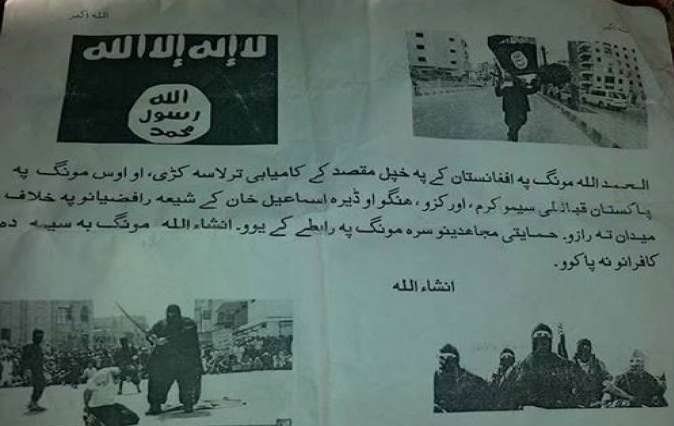 الله اكبر
الله اكبر
لا إله إلا الله
الله
رسول
محمد
الحمد الله مونگ په افغانستان کے په خپل مقصد کے کامیابی ترلاسه کڑی، او اوس مونگ په
پاکستان قبائلی سیمو کرم، اورکزو، هنگو او ڈیره اسماعیل خان کے شیعه رافضیانو په خلاف
میدان ته رازو. حمایتی مجاهدینو سره مونگ په رابطے کے یوو. انشاء الله مونگ به سیمه ده
کافرانو نه پاکوو.
انشاء الله